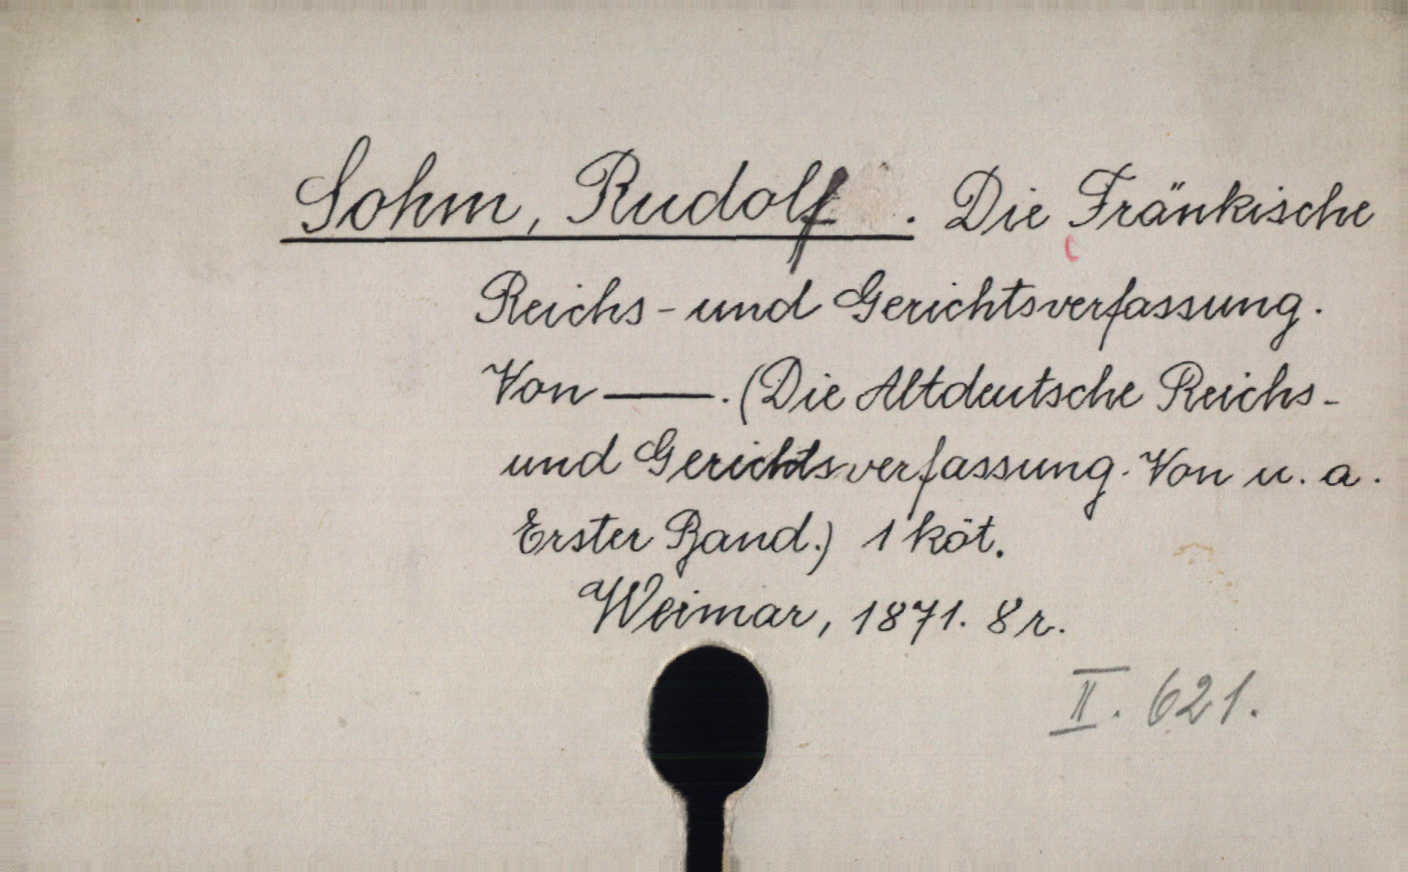 Sohm, Rudolf. Die Fränkische
Reichs- und Gerichtsverfassung.
Von ——. (Die Altdeutsche Reichs-
und Gerichtsverfassung. Von u. a.
Erster Band.) 1 köt.
Weimar, 1871. 8 r.
II. 621.